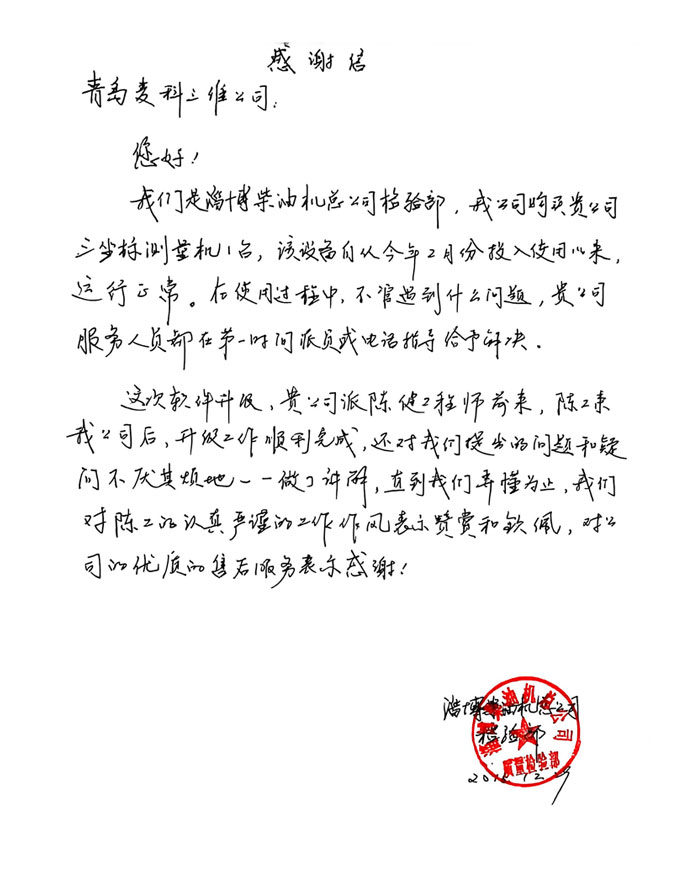 感谢信
青岛麦科三维公司:
您好!
我们是淄博柴油机总公司检验部,我公司购买贵公司
三坐标测量机1台,该设备自从今年2月份投入使用以来,
运行正常。在使用过程中,不管遇到什么问题,贵公司
服务人员都在第一时间派员或电话指导给予解决。
这次软件升级,贵公司派陈健工程师前来,陈工来
我公司后,升级工作顺利完成,还对我们提出的问题和疑
问不厌其烦地一一做了讲解,直到我们弄懂为止,我们
对陈工的认真严谨的工作作风表示赞赏和钦佩,对公
司的优质的售后服务表示感谢!
淄博柴油机总公司
检验部
淄博柴油机总公司
质量检验部